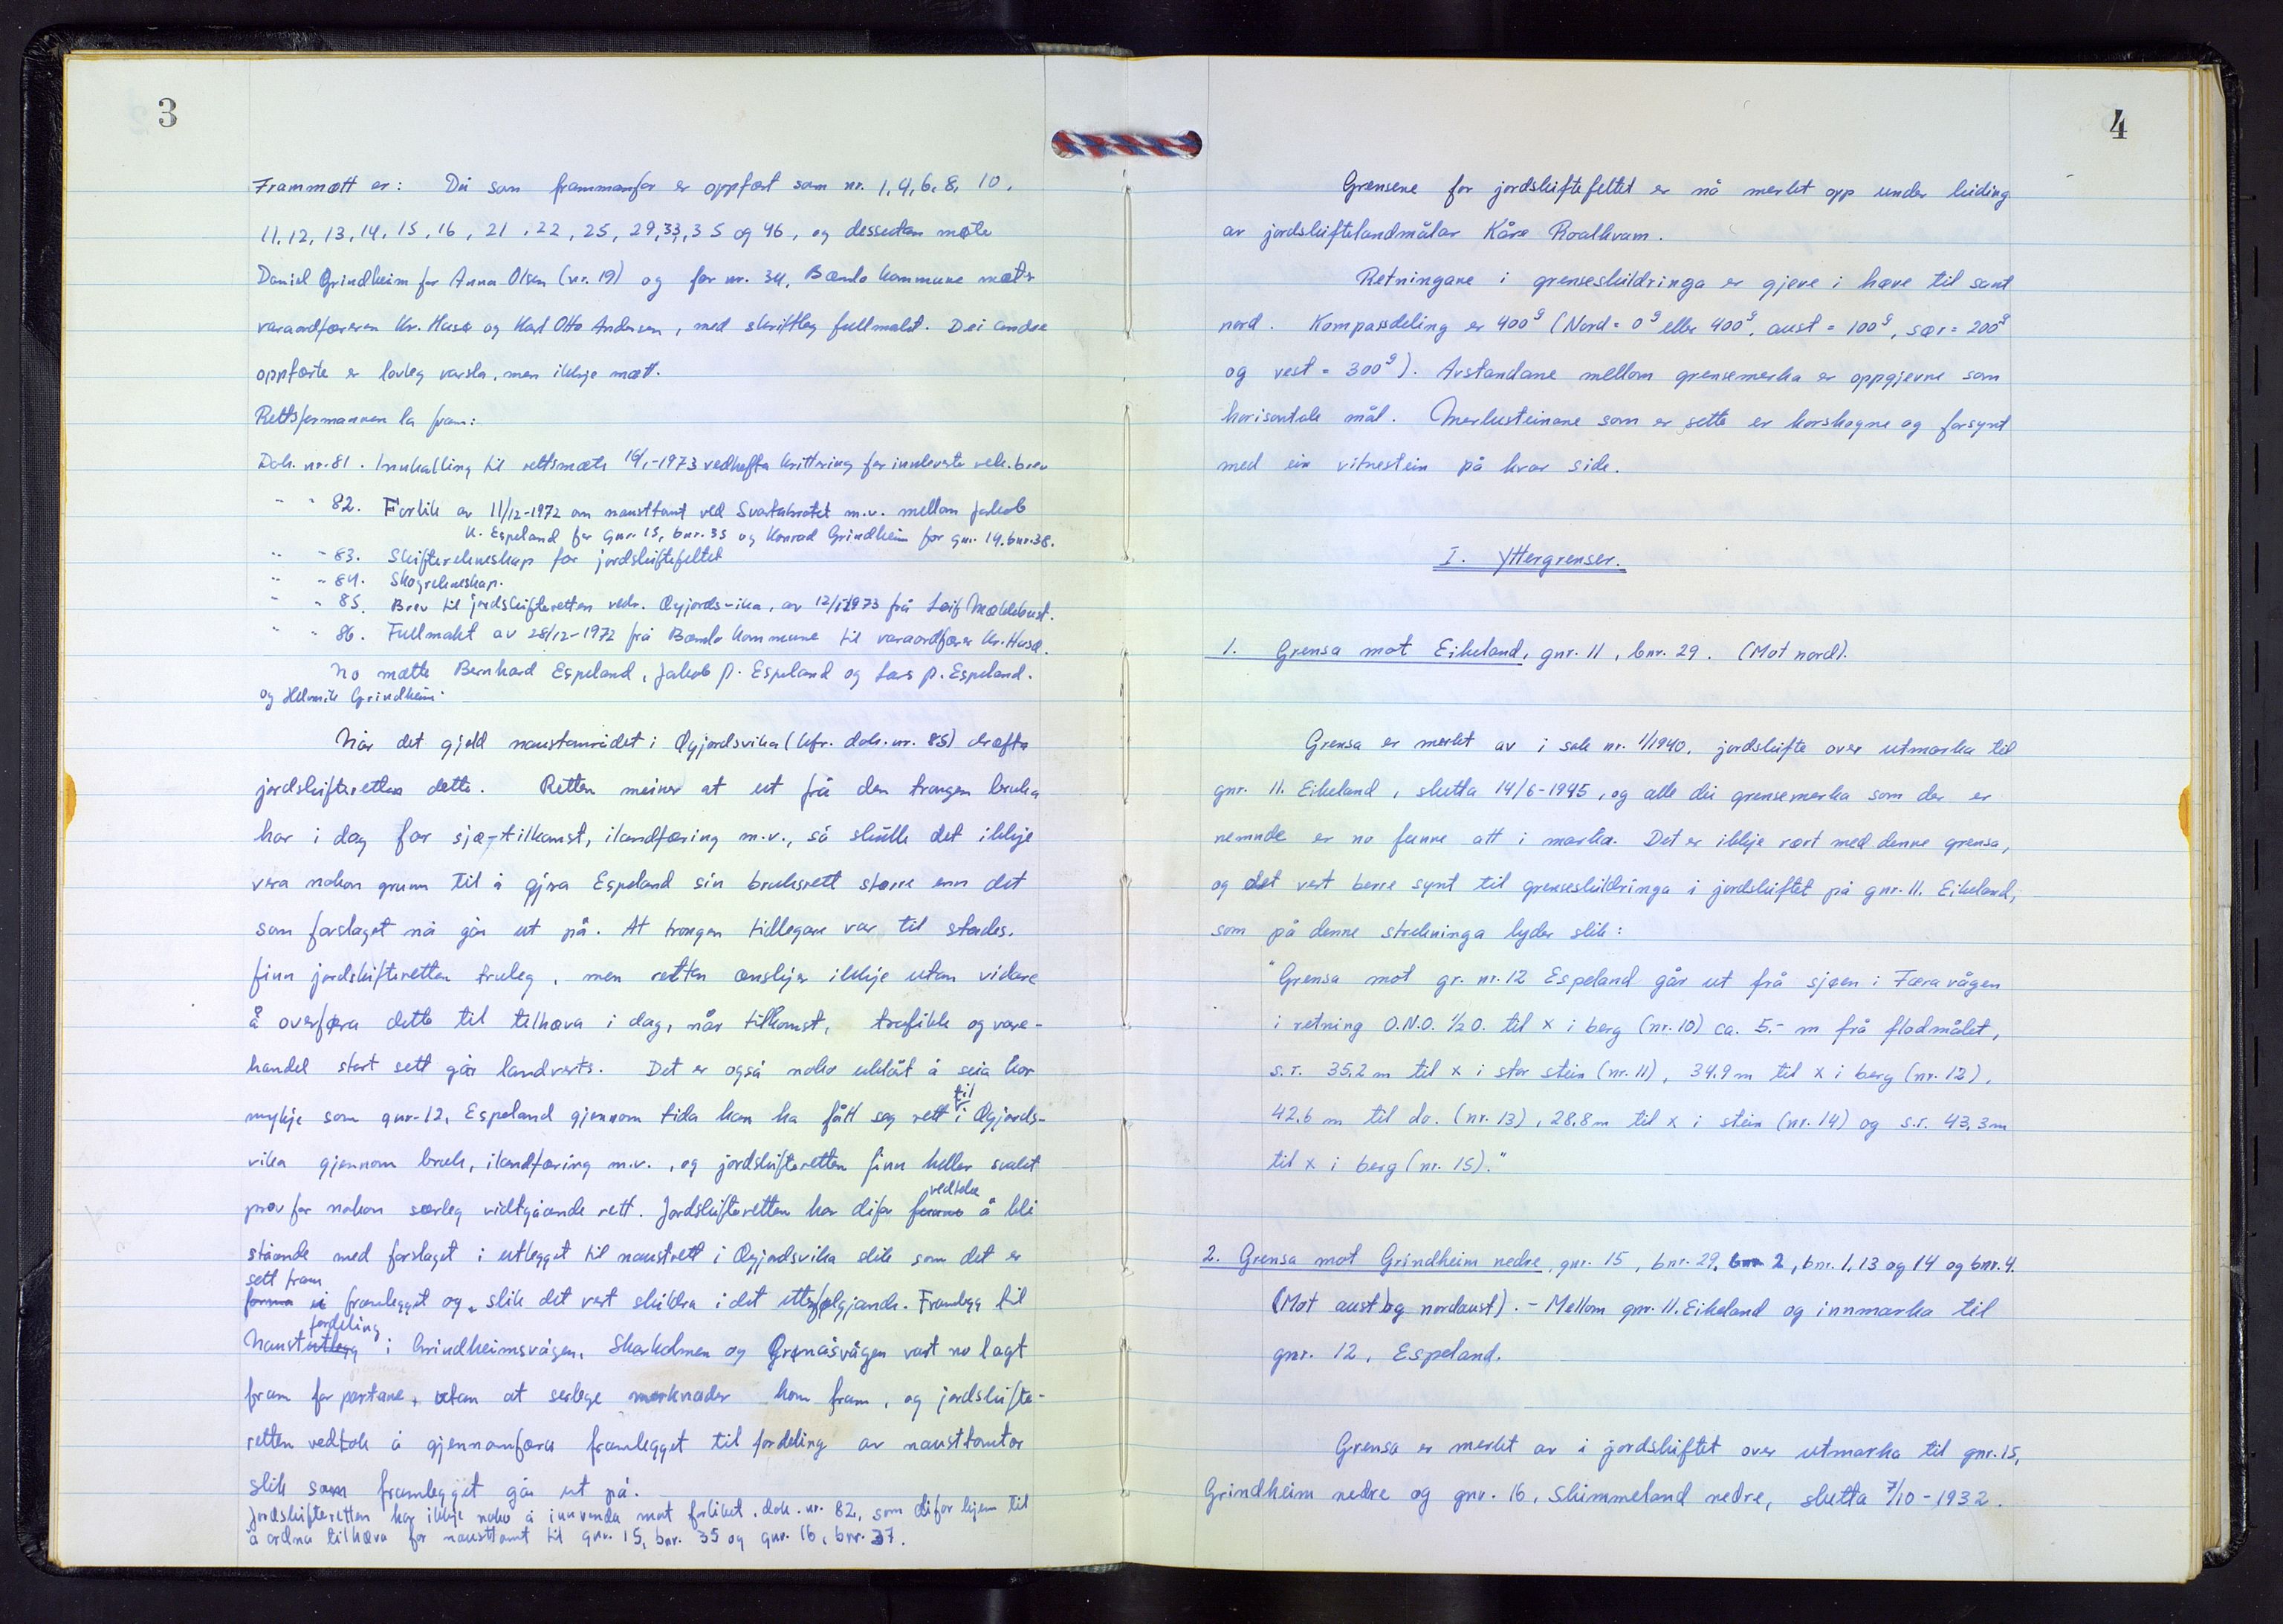 3
Frammøtt er: Dei som frammanfor er oppført som nr. 1, 4, 6, 8, 10,
11, 12, 13, 14, 15, 16, 21, 22, 25, 29, 33, 35 og 46, og dessutan møtte
Daniel Grindheim for Anna Olsen (nr. 19) og for nr. 34, Bømlo kommune møtte
varaordføreren Kr. Husa og Karl Otto Andersen, med skriftleg fullmakt. Dei andre
oppførte er lovleg varsla, men ikkje møtt.
Rettsformannen la fram:
Dok. nr. 81. Innkalling til rettsmøte 16/1-1973 vedhefta kvittering for innleverte rek. brev
" " 82. Forlik av 11/12-1972 om nausttomt ved Svartabrotet m.v. mellom Jakob
K. Espeland for gnr. 15, bnr. 35 og Konrad Grindheim for gnr. 14, bnr. 38.
" " 83. Skifterekneskap for jordskiftefeltet
" " 84. Skogrekneskap.
" " 85. Brev til jordskifteretten vedr. Øyjordsvika, av 12/1 1973 frå Leif Meldebust.
" " 86. Fullmakt av 28/12-1972 frå Bømlo kommune til varaordfører Kr. Husa.
No møtte Bernhard Espeland, Jakob P. Espeland og Lars P. Espeland.
og Helmik Grindheim.
Når det gjeld naustområdet i Øyjordsvika (kfr. dok. nr. 85) drøfta
jordskifteretten dette. Retten meiner at ut frå den trongen bruka
har i dag for sjø-tilkomst, ilandføring m.v., så skulle det ikkje
vera nokon grunn til å gjera Espeland sin bruksrett større enn det
som forslaget nå går ut på. At trongen tidlegare var til stades,
finn jordskifteretten truleg, men retten ønskjer ikkje utan vidare
å overføra dette til tilhøva i dag, når tilkomst, trafikk og vare-
handel stort sett går landverts. Det er også noko uklårt å seia kor
til
mykje som gnr. 12, Espeland gjennom tida kan ha fått seg rett i Øyjords-
vika gjennom bruk, ilandføring m.v., og jordskifteretten finn heller svakt
vedteke
prov for nokon særleg vidtgåande rett. Jordskifteretten har difor funne å bli
ståande med forslaget i utlegget til naustrett i Øyjordsvika slik som det er
sett fram
forma i framlegget og slik det vert skildra i det etterfølgjande. Framlegg til
fordeling
Naustutlegg i Grindheimsvågen, Skarholmen og Grønåsvågen vart no lagt
fram for partane, utan at serlege merknader kom fram, og jordskifte-
retten vedtok å gjennomføra framlegget til fordeling av nausttomtor
slik som framlegget går ut på.
Jordskifteretten har ikkje noko å innvenda mot forliket, dok. nr. 82, som difor kjem til
å ordna tilhøva for nausttomt til gnr. 15, bnr. 35 og gnr. 16, bnr. 37.
4
Grensene for jordskiftefeltet er nå merkt opp under leiding
av jordskiftelandmålar Kåre Roalkvam.
Retningane i grenseskildringa er gjeve i høve til sant
nord. Kompassdeling er 400g (Nord = 0g eller 400g, aust = 100g, sør = 200g
og vest = 300g). Avstandane mellom grensemerka er oppgjevne som
horisontale mål. Merkesteinane som er sette er korshogne og forsynt
med ein vitnestein på kvar side.
I. Yttergrenser.
1. Grensa mot Eikeland, gnr. 11, bnr. 29. (Mot nord).
Grensa er merkt av i sak nr. 1/1940, jordskifte over utmarka til
gnr. 11. Eikeland, slutta 14/6-1945, og alle dei grensemerka som der er
nemnde er no funne att i marka. Det er ikkje rørt med denne grensa,
og det vert berre synt til grenseskildringa i jordskiftet på gnr. 11. Eikeland,
som på denne strekninga lyder slik:
"Grensa mot gr. nr. 12 Espeland går ut frå sjøen i Færavågen
i retning O.N.O. 1/2 O. til x i berg (nr. 10) ca. 5.- m frå flodmålet,
s.r. 35.2 m til x i stor stein (nr. 11), 34.9 m til x i berg (nr. 12),
42.6 m til do. (nr. 13), 28.8 m til x i stein (nr. 14) og s.r. 43.3 m
til x i berg (nr. 15)."
2. Grensa mot Grindheim nedre, gnr. 15, bnr. 29, bnr 2, bnr. 1, 13 og 14 og bnr. 4.
(Mot aust og nordaust). - Mellom gnr. 11. Eikeland og innmarka til
gnr. 12, Espeland.
Grensa er merkt av i jordskiftet over utmarka til gnr. 15,
Grindheim nedre og gnr. 16, Skimmeland nedre, slutta 7/10-1932.